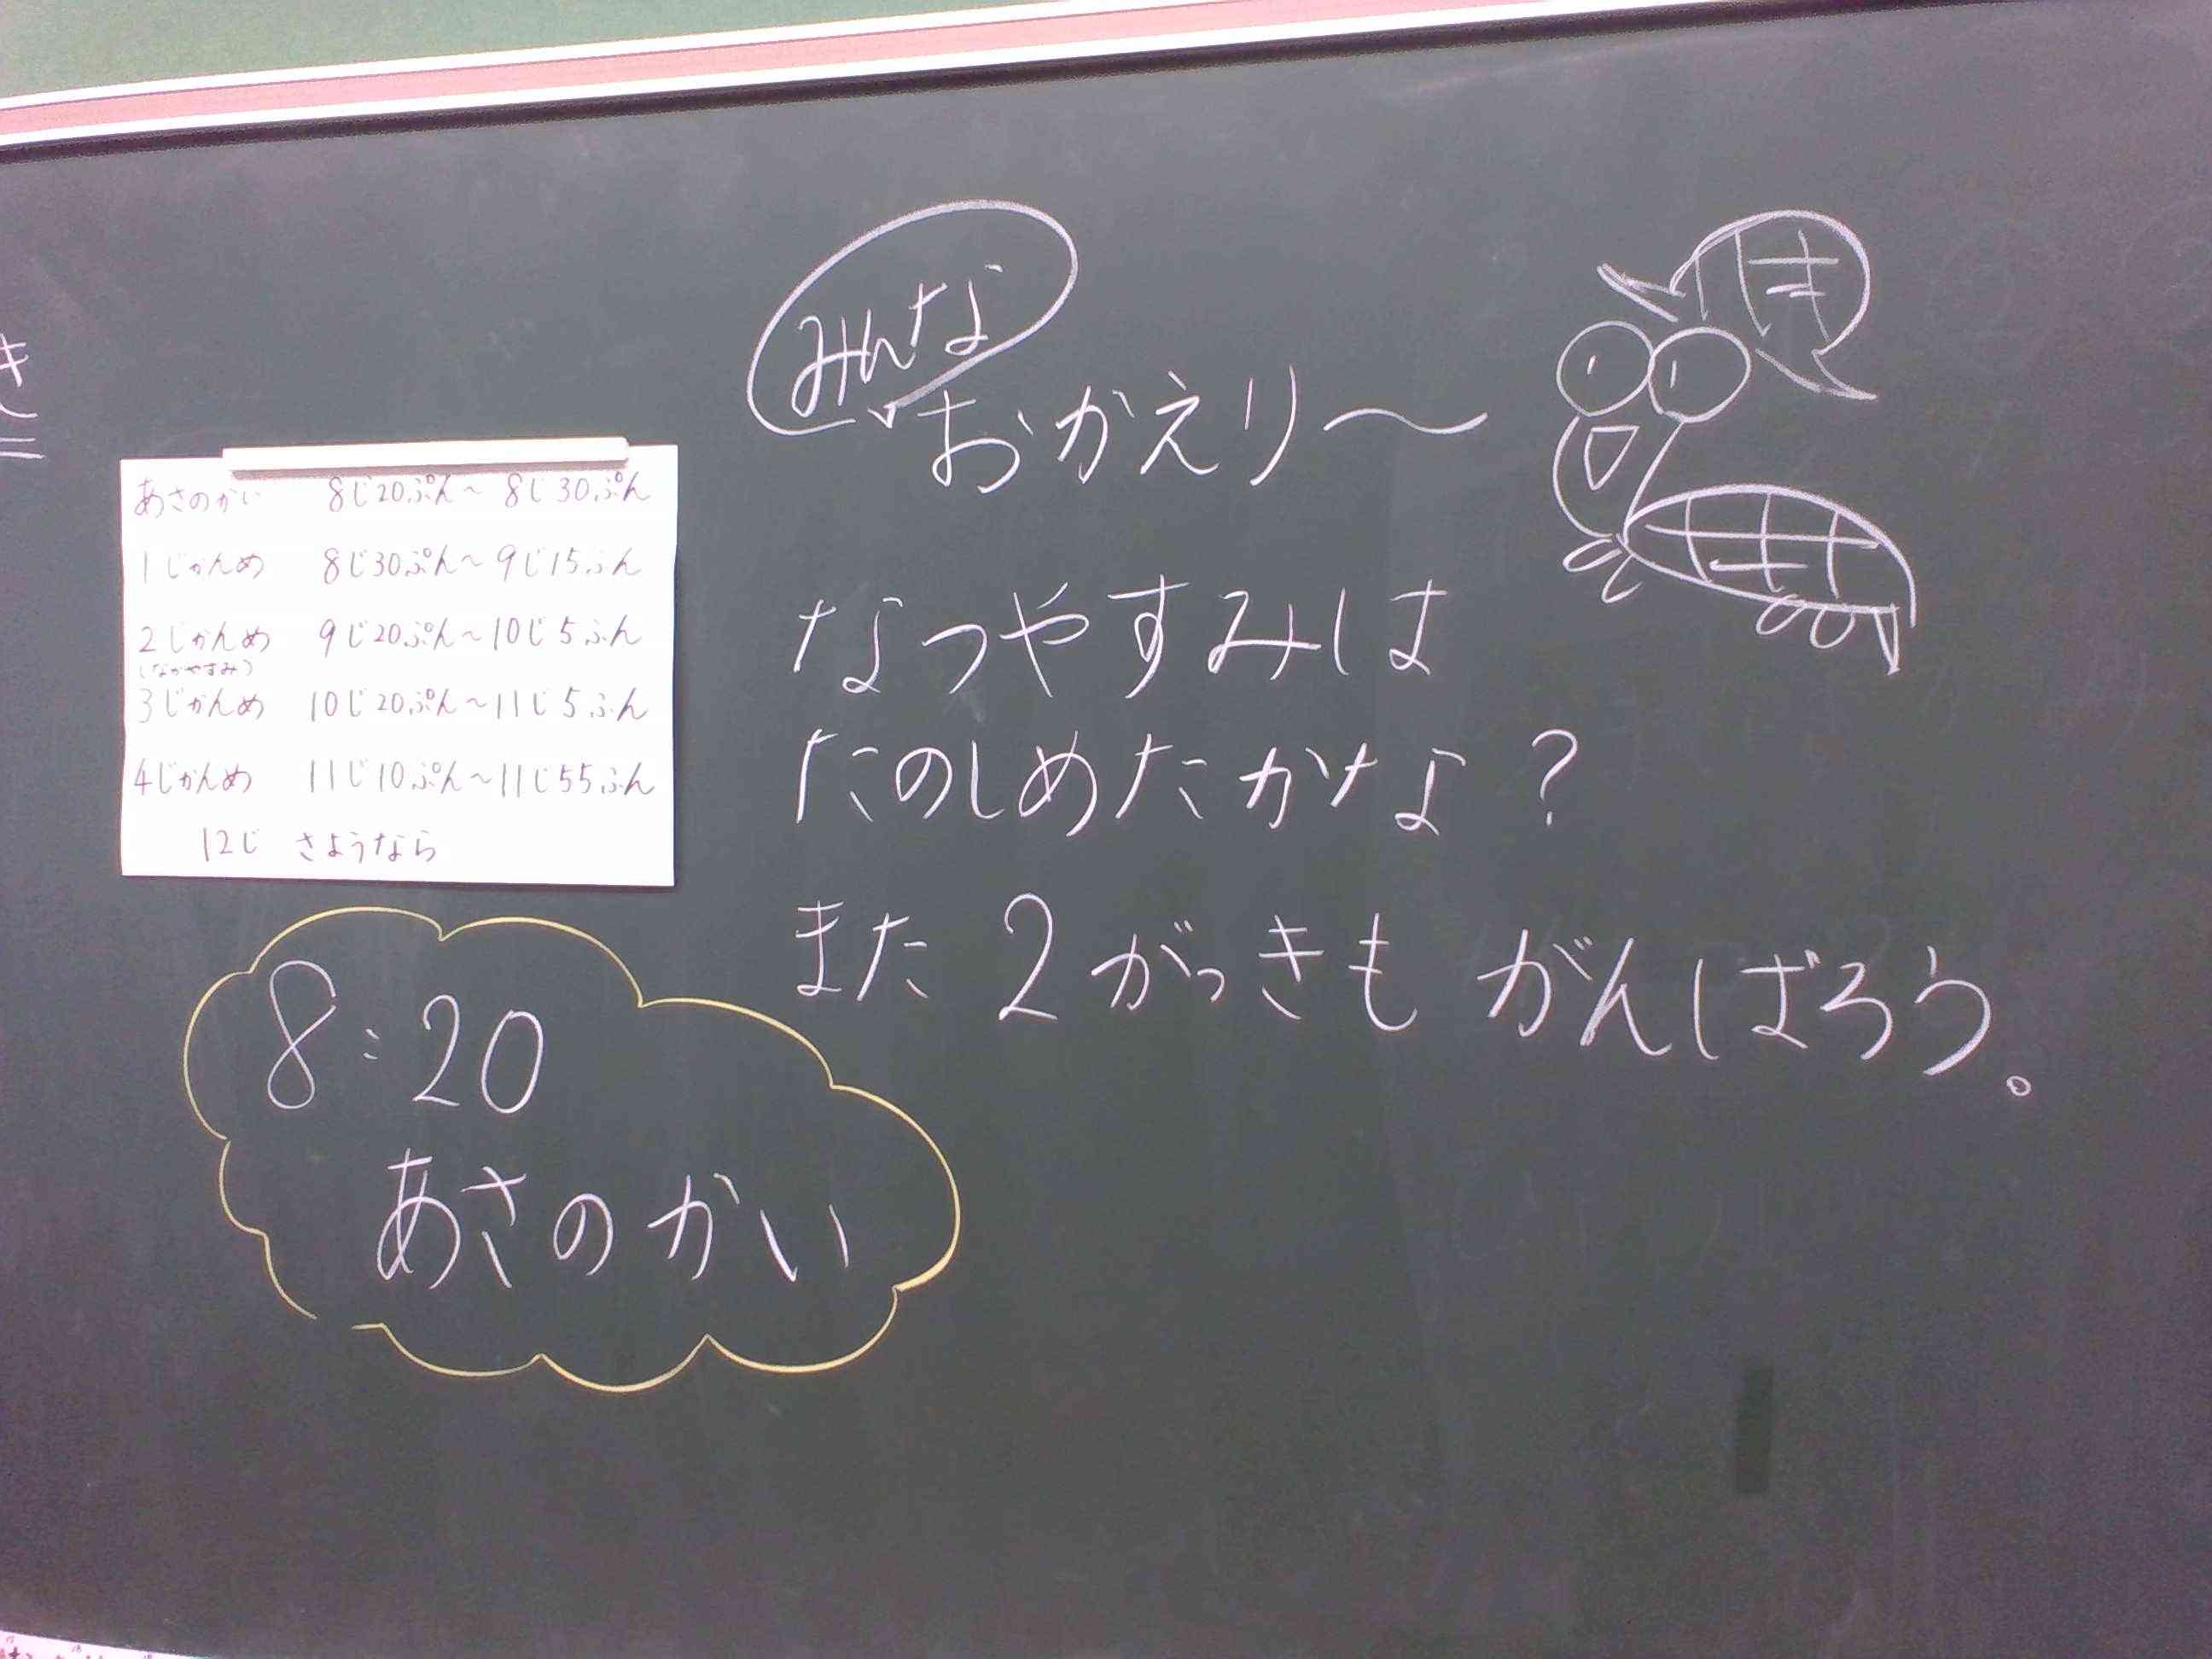 あさのかい 8じ20ぷん〜8じ30ぷん
1じかんめ 8じ30ぷん〜9じ15ふん
2じかんめ 9じ20ぷん〜10じ5ふん
(なかやすみ)
3じかんめ 10じ20ぷん〜11じ5ふん
4じかんめ 11じ10ぷん〜11じ55ふん
12じ さようなら
8:20
あさのかい
みんな
おかえり〜
なつやすみは
たのしめたかな?
また 2がっきも がんばろう。